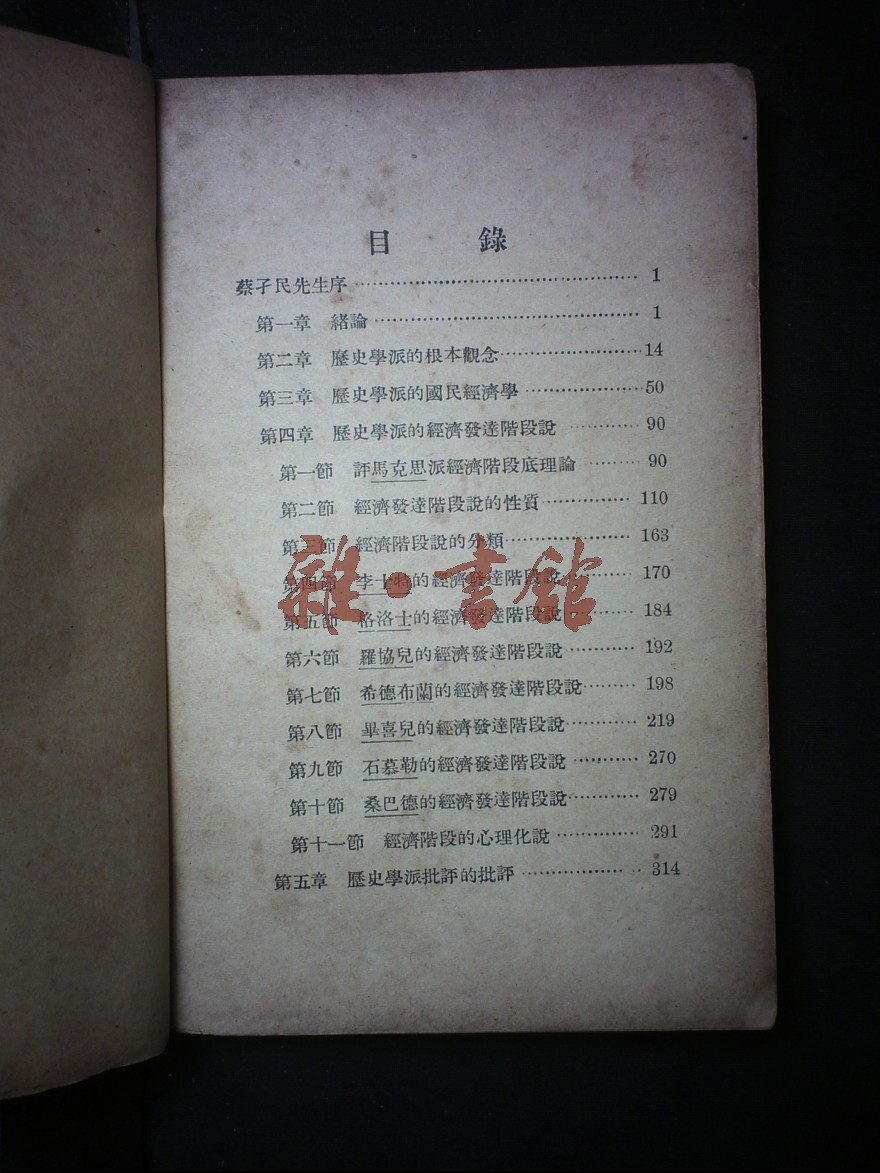 目 錄
蔡孑民先生序 1
第一章 緒論 1
第二章 歷史學派的根本觀念 14
第三章 歷史學派的國民經濟學 50
第四章 歷史學派的經濟發達階段說 90
第一節 評馬克思派經濟階段底理論 90
第二節 經濟發達階段說的性質 110
第三節 經濟階段說的分類 163
第四節 李士特的經濟發達階段說 170
第五節 格洛士的經濟發達階段說 184
第六節 羅協兒的經濟發達階段說 192
第七節 希德布蘭的經濟發達階段說 198
第八節 畢喜兒的經濟發達階段說 219
第九節 石慕勒的經濟發達階段說 270
第十節 桑巴德的經濟發達階段說 279
第十一節 經濟階段的心理化說 291
第五章 歷史學派批評的批評 314
雜·書館